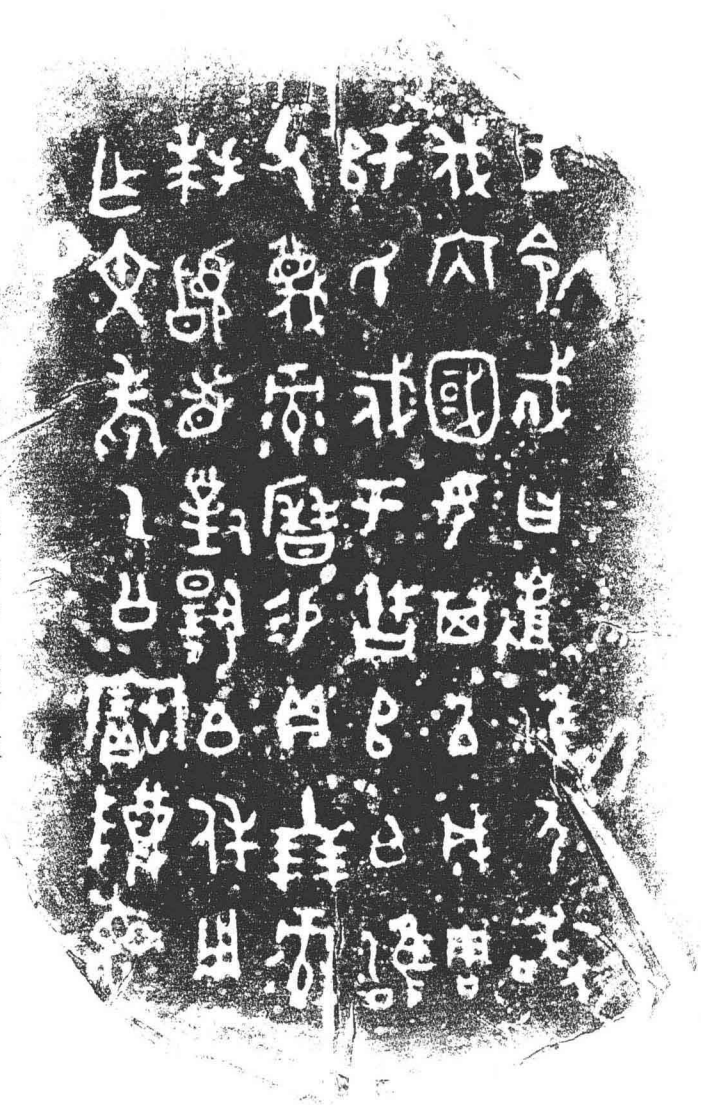 王令𢦚曰𠭯淮尸敢
伐內國女其以成周
師氏戍于𠂤白雍
父蔑彔曆易貝十朋彔
拜稽首對揚白休用
乍文考乙公寶尊彝